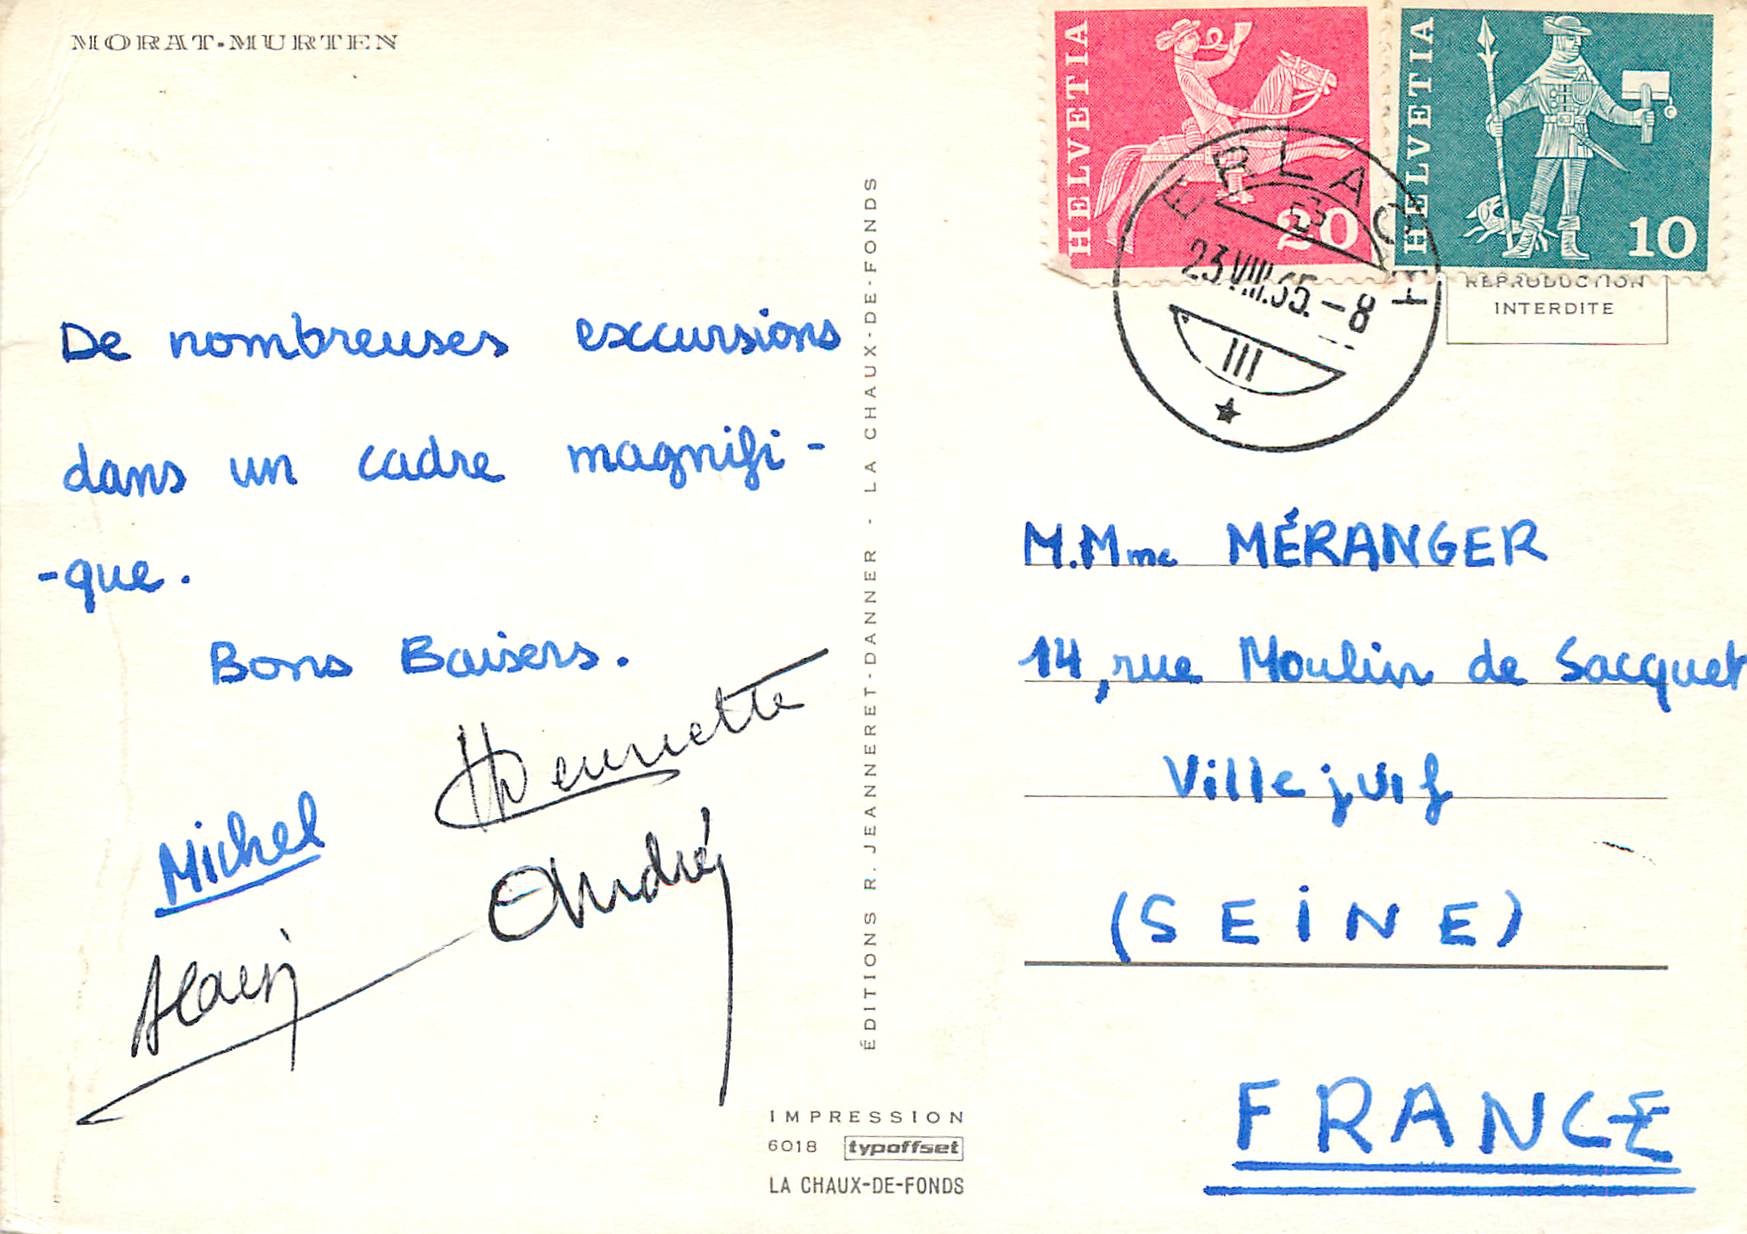 MORAT-MURTEN
De nombreuses excursions
dans un cadre magnifi-
-que.
Bons Baisers.
Henriette
Michel
André
Alain
ÉDITIONS R. JEANNERET-DANNER - LA CHAUX-DE-FONDS
IMPRESSION
6018 typoffset
LA CHAUX-DE-FONDS
HELVETIA
20
HELVETIA
10
ERLACH
23.VIII.65.-8
III
REPRODUCTION
INTERDITE
M.Mme MÉRANGER
14, rue Moulin de Sacquet
Villejuif
(SEINE)
FRANCE